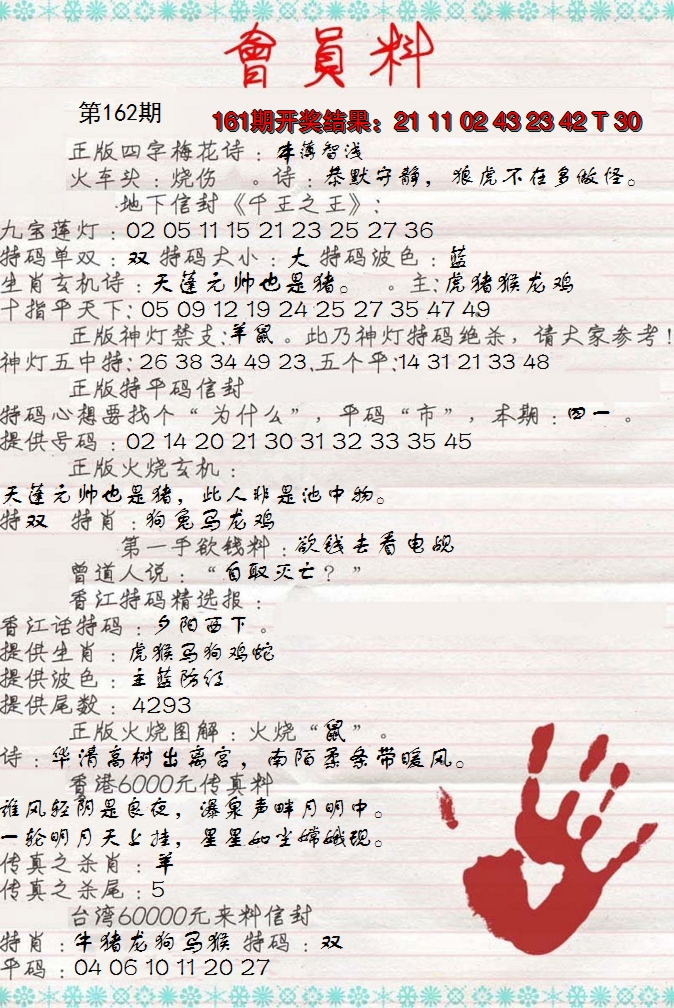 會員料
第162期
161期开奖结果：21 11 02 43 23 42 T 30
正版四字梅花诗：才薄智浅
火车头：烧伤 。诗：恭默守静，狼虎不在多做怪。
地下信封《千王之王》：
九宝莲灯：02 05 11 15 21 23 25 27 36
特码单双：双 特码大小：大 特码波色：蓝
生肖玄机诗：天蓬元帅也是猪。 。主：虎猪猴龙鸡
十指平天下：05 09 12 19 24 25 27 35 47 49
正版神灯禁支：羊鼠 。此乃神灯特码绝杀，请大家参考！
神灯五中特：26 38 34 49 23.五个平：14 31 21 33 48
正版特平码信封
特码心想要找个“为什么”，平码“市”，本期：四一 。
提供号码：02 14 20 21 30 31 32 33 35 45
正版火烧玄机：
天蓬元帅也是猪，此人非是池中物。
特双 特肖：狗兔马龙鸡
第一手欲钱料：欲钱去看电视
曾道人说：“自取灭亡？”
香江特码精选报：
香江话特码：夕阳西下 。
提供生肖：虎猴马狗鸡蛇
提供波色：主蓝防红
提供尾数：4293
正版火烧图解：火烧“鼠”。
诗：华清高树出离宫，南陌柔条带暖风。
香港6000元传真料
谁风轻阴是良夜，瀑泉声畔月明中。
一轮明月天上挂，星星如尘嫦娥现。
传真之杀肖：羊
传真之杀尾：5
台湾60000元来料信封
特肖：牛猪龙狗马猴 特码：双
平码：04 06 10 11 20 27